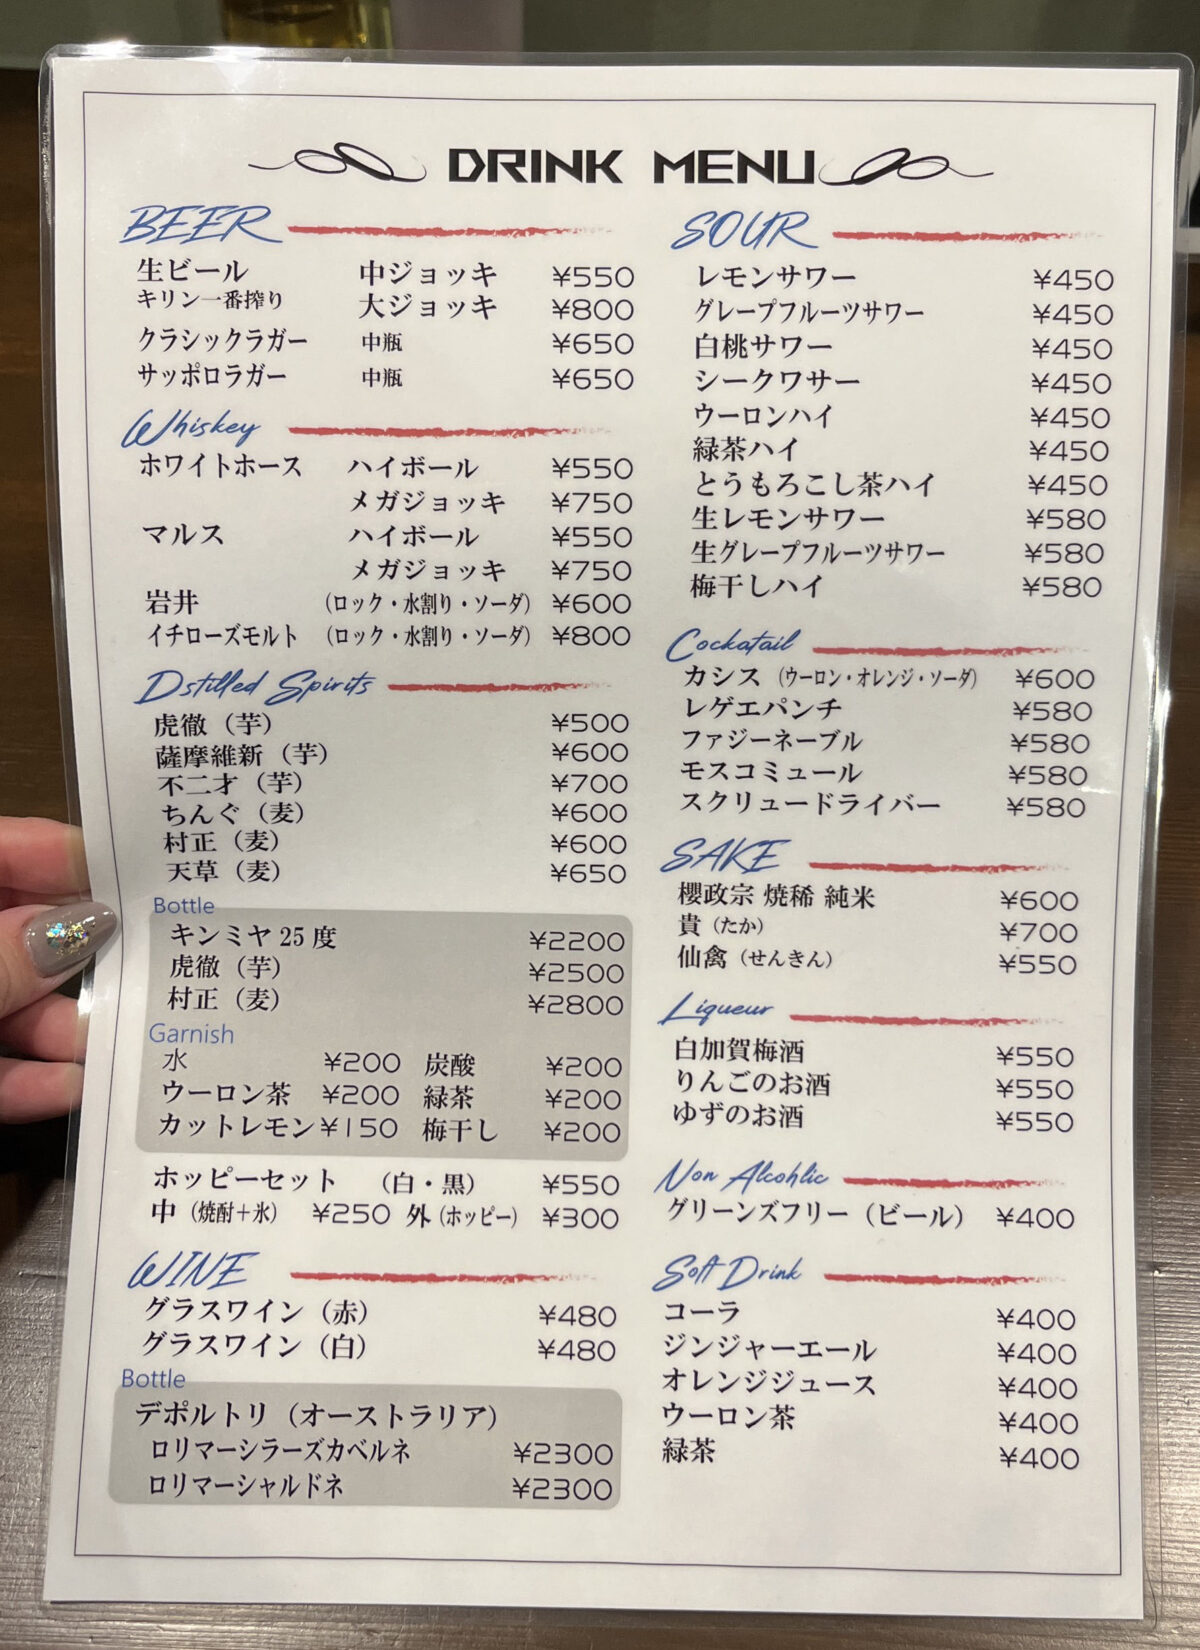 DRINK MENU
BEER
生ビール 中ジョッキ ¥550
キリン一番搾り 大ジョッキ ¥800
クラシックラガー 中瓶 ¥650
サッポロラガー 中瓶 ¥650
Whiskey
ホワイトホース ハイボール ¥550
メガジョッキ ¥750
マルス ハイボール ¥550
メガジョッキ ¥750
岩井 (ロック・水割り・ソーダ) ¥600
イチローズモルト (ロック・水割り・ソーダ) ¥800
Dstilled Spirits
虎徹（芋） ¥500
薩摩維新（芋） ¥600
不二才（芋） ¥700
ちんぐ（麦） ¥600
村正（麦） ¥600
天草（麦） ¥650
Bottle
キンミヤ 25 度 ¥2200
虎徹（芋） ¥2500
村正（麦） ¥2800
Garnish
水 ¥200 炭酸 ¥200
ウーロン茶 ¥200 緑茶 ¥200
カットレモン ¥150 梅干し ¥200
ホッピーセット （白・黒） ¥550
中（焼酎＋氷） ¥250 外（ホッピー） ¥300
WINE
グラスワイン（赤） ¥480
グラスワイン（白） ¥480
Bottle
デポルトリ（オーストラリア）
ロリマーシラーズカベルネ ¥2300
ロリマーシャルドネ ¥2300
SOUR
レモンサワー ¥450
グレープフルーツサワー ¥450
白桃サワー ¥450
シークワサー ¥450
ウーロンハイ ¥450
緑茶ハイ ¥450
とうもろこし茶ハイ ¥450
生レモンサワー ¥580
生グレープフルーツサワー ¥580
梅干しハイ ¥580
Cockatail
カシス（ウーロン・オレンジ・ソーダ） ¥600
レゲエパンチ ¥580
ファジーネーブル ¥580
モスコミュール ¥580
スクリュードライバー ¥580
SAKE
櫻政宗 焼稀 純米 ¥600
貴（たか） ¥700
仙禽（せんきん） ¥550
Liqueur
白加賀梅酒 ¥550
りんごのお酒 ¥550
ゆずのお酒 ¥550
Non Alcohlic
グリーンズフリー（ビール） ¥400
Soft Drink
コーラ ¥400
ジンジャーエール ¥400
オレンジジュース ¥400
ウーロン茶 ¥400
緑茶 ¥400